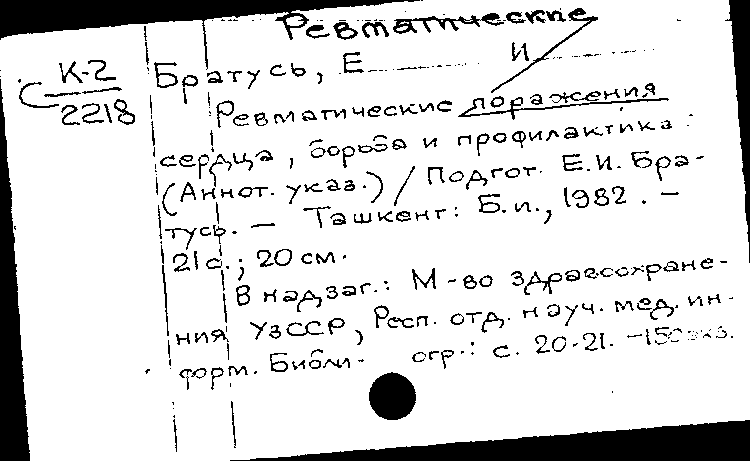 Ревматические
К-2
2218
Братусь, Е И
Ревматические поражения
сердца, борьба и профилактика :
(Аннот. указ.) / Подгот. Е.И. Бра-
тусь. — Ташкент: Б.и., 1982. —
21 с.; 20 см.
В надзаг.: М-во здравоохране-
ния УзССР, Респ. отд. науч. мед. ин-
форм. Библи- огр.: с. 20-21. — 150 экз.